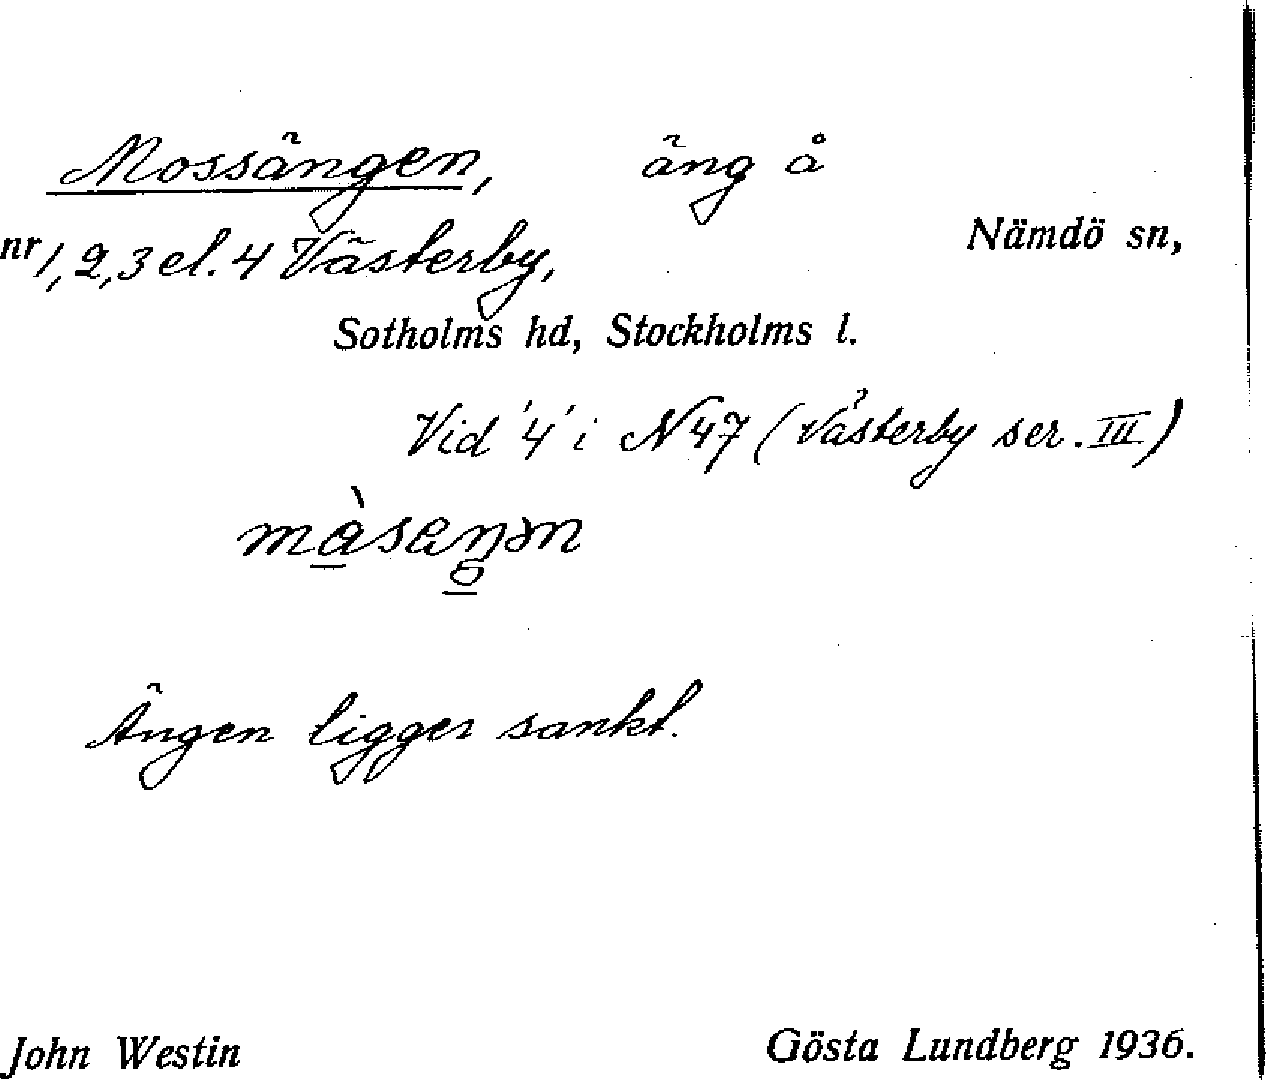 Mossängen, äng å
nr 1, 2, 3 el. 4 Västerby, Nämdö sn,
Sotholms hd, Stockholms l.
Vid '4' i N 47 (Västerby ser. III)
Ängen ligger sankt.
John Westin Gösta Lundberg 1936.